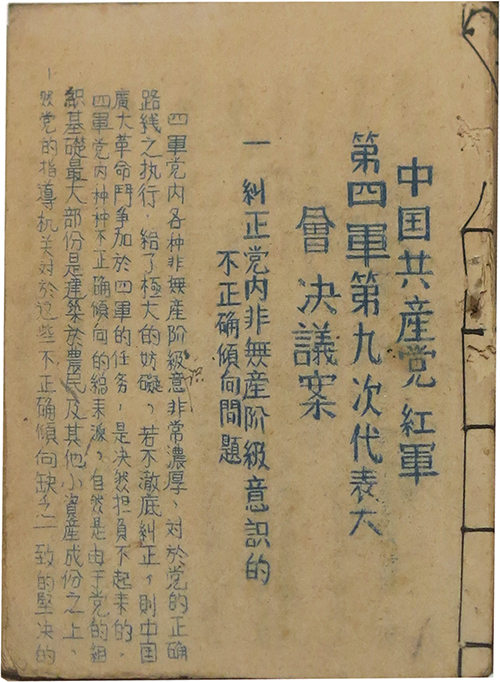 中囯共產党 紅軍
第四軍第九次代表大
會决議案
一 糾正党内非無產阶級意识的
不正确傾向問題
四軍党内各种非無產阶級意识非常濃厚、对於党的正确
路线之执行，給了極大的妨礙，若不澈底糾正，則中囯
廣大革命鬥争加於四軍的任务，是决然担負不起来的，
四軍党内种种不正确傾向的縂来源，自然是由于党的組
織基礎最大部份是建築於農民及其他小資產成份之上、
然党的指導机关对於这些不正确傾向缺乏一致的坚决的